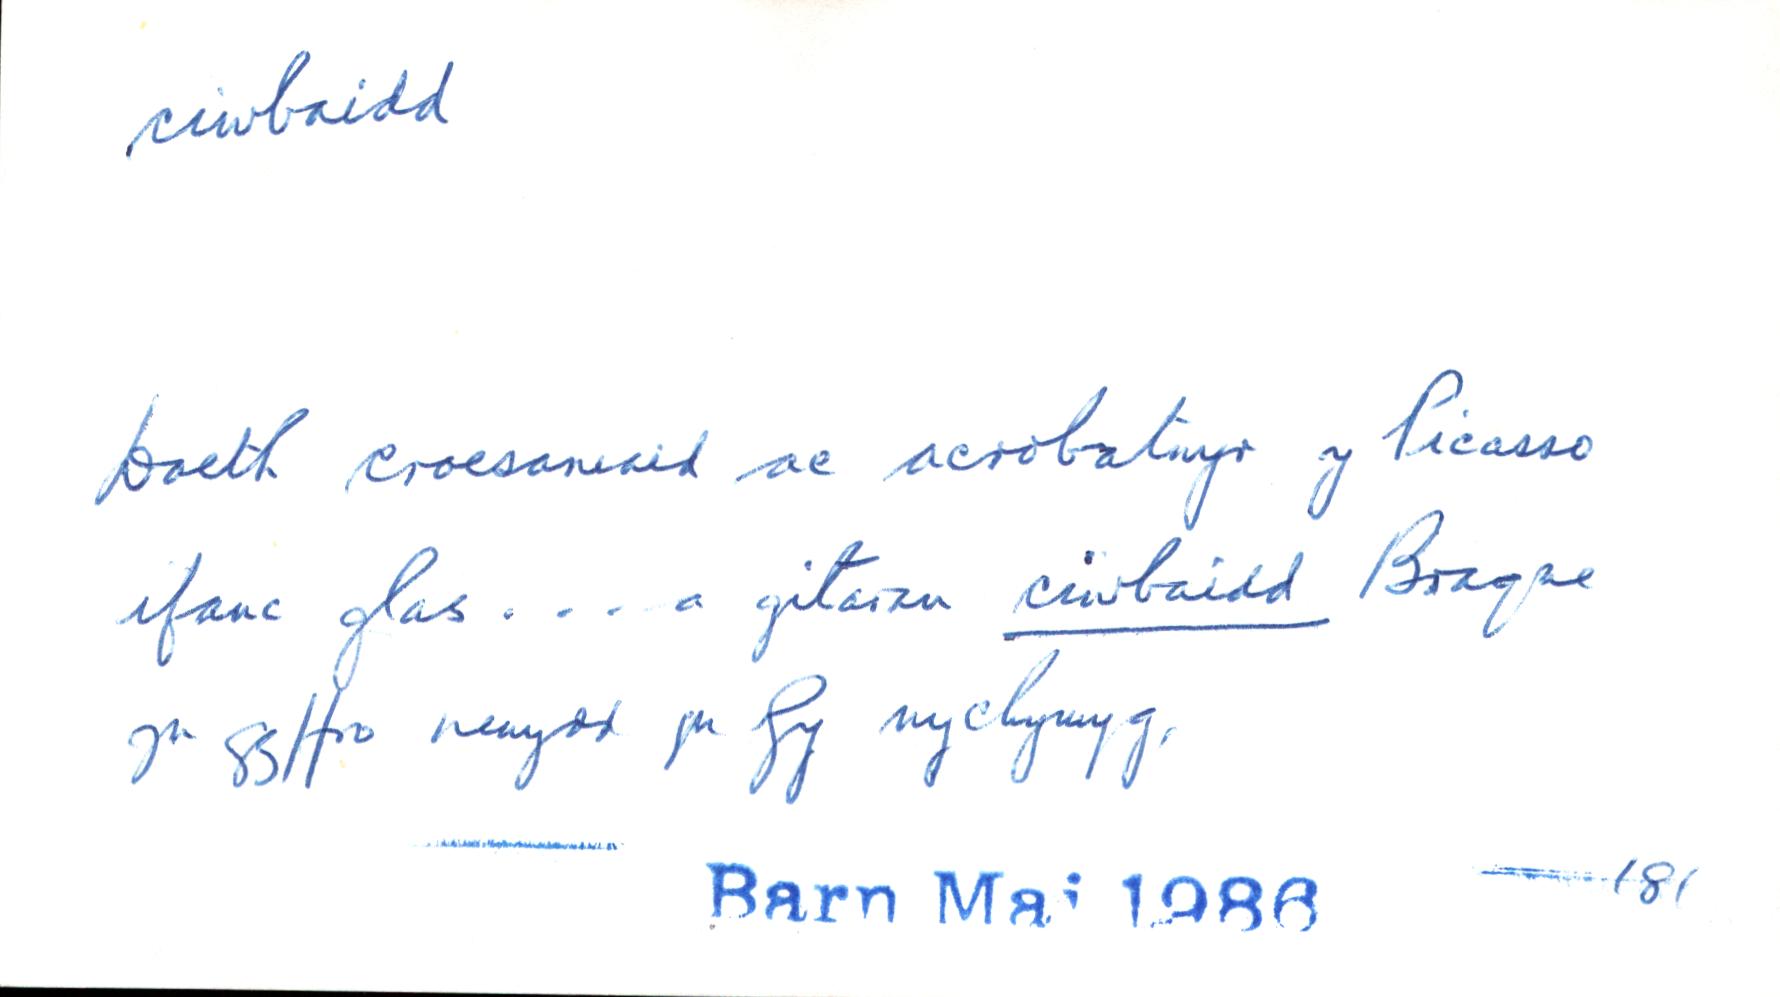 ciwbaidd
Daeth croesaniaid ac acrobatwyr y Picasso
ifanc glas.... a gitarau ciwbaidd Braque
yn gyffro newydd yn fy nychymyg.
Barn Mai 1986 181